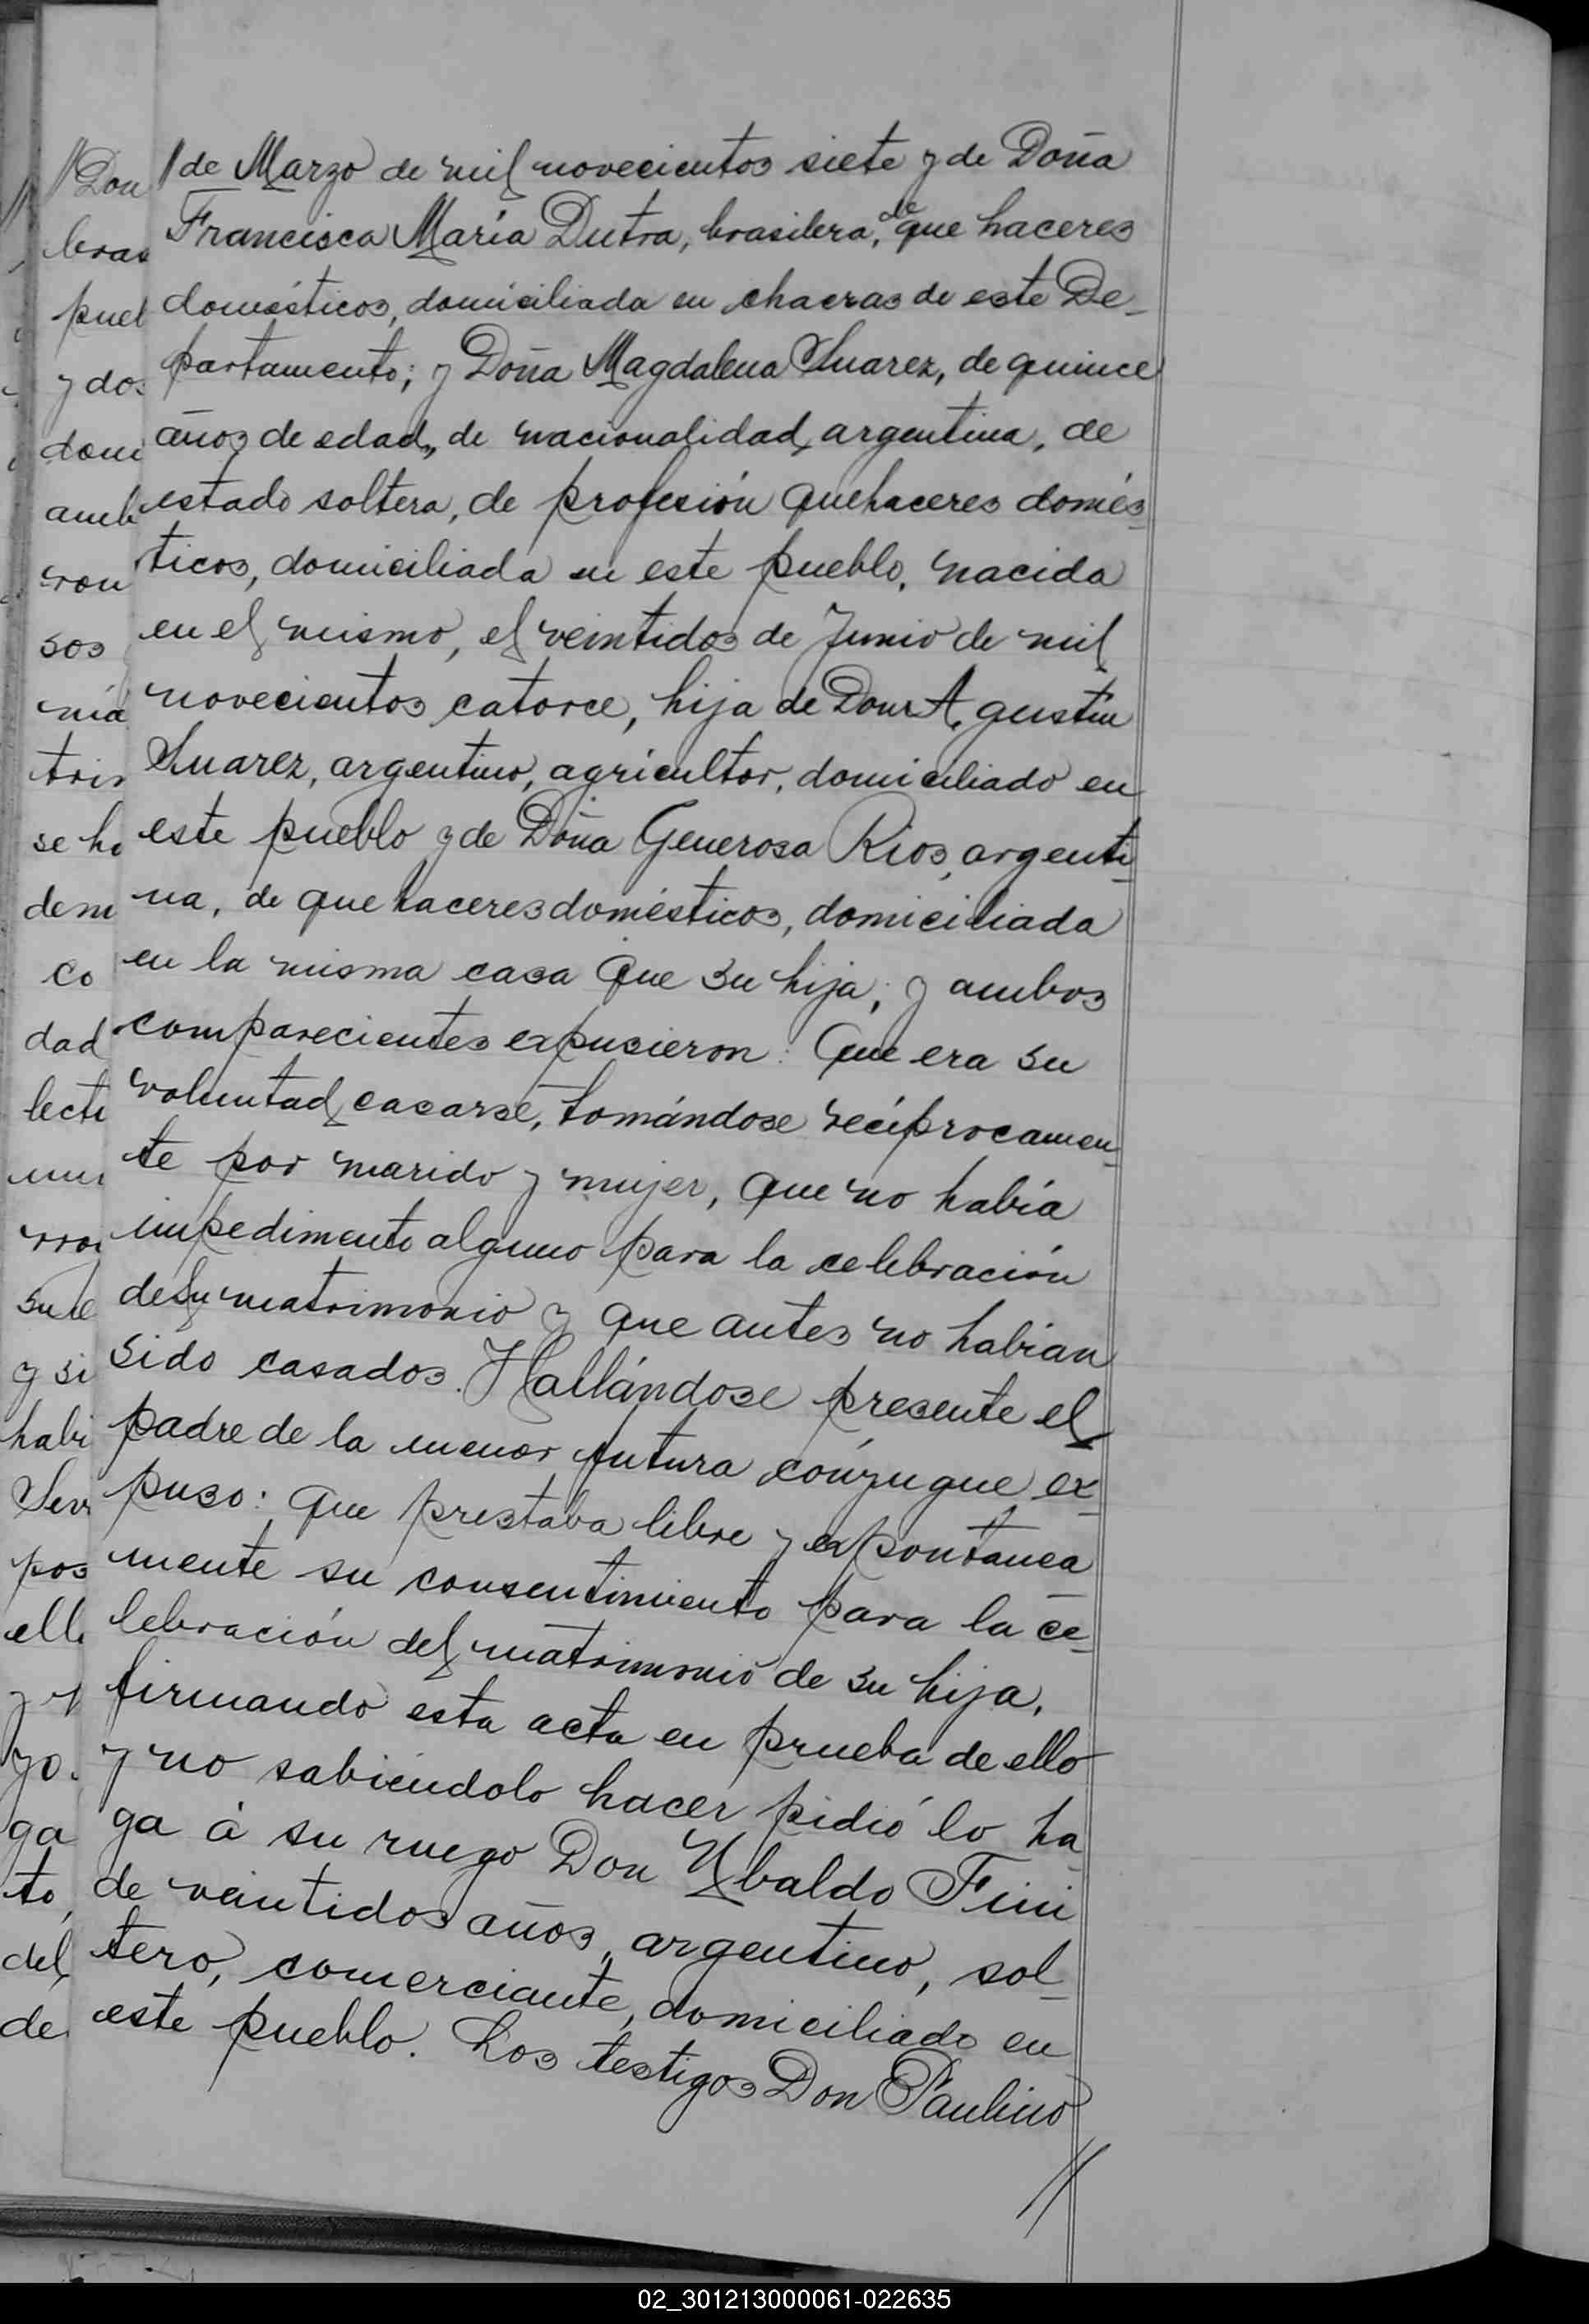 //de Marzo de mil novecientos siete y de Doña
Francisca María Dutra, brasilera, de que haceres
domésticos, domiciliada en chacras de este De-
partamento; y Doña Magdalena Suarez, de quince
años de edad, de nacionalidad argentina, de
estado soltera, de profesión quehaceres domés-
ticos, domiciliada en este pueblo, nacida
en el mismo, el veintidos de Junio de mil
novecientos catorce, hija de Don Agustín
Suarez, argentino, agricultor, domiciliado en
este pueblo y de Doña Generosa Rios, argenti-
na, de que haceres domésticos, domiciliada
en la misma casa que su hija; y ambos
comparecientes expusieron: Que era su
voluntad casarse, tomándose recíprocamen-
te por marido y mujer, que no había
impedimento alguno para la celebración
de su matrimonio y que antes no habían
sido casados. Hallándose presente el
padre de la menor futura cónyugue ex-
puso: que prestaba libre y expontanea
mente su consentimiento para la ce-
lebración del matrimonio de su hija,
firmando esta acta en prueba de ello
y no sabiéndolo hacer pidió lo ha-
ga á su ruego Don Ubaldo Fini
de veintidos años, argentino, sol-
tero, comerciante, domiciliado en
este pueblo. Los testigos Don Paulino
//
//Don
bras
puel
y dos
domi
amb
ron
sos
nia
trim
se ha
dem
co
dad
lectu
mu
rro
su le
y si
habi
Serv
pos
ell
yo
ga
to,
del
de
02_301213000061-022635